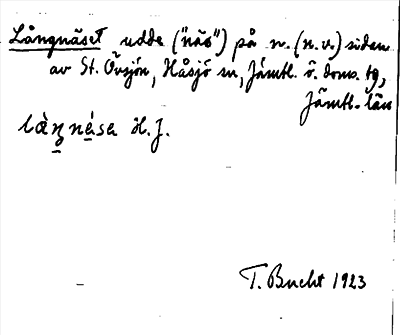 Långnäset udde ("näs") på n. (n.v.) sidan
av St. Övsjön, Håsjö sn, Jämtl. ö. doms. tg,
Jämtl. län
H.J.
T. Bucht 1923